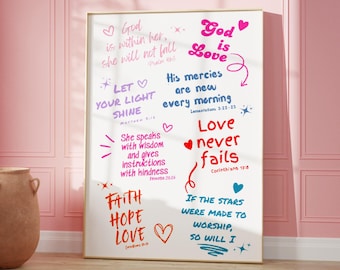 God
is within her,
she will not fall
Psalm 46:5
God
is
Love
LET
YOUR LIGHT
SHINE
Matthew 5:16
His mercies
are new
every morning
Lamentations 3:22-23
She speaks
with wisdom
and gives
instructions
with kindness
Proverbs 31:26
Love
never
fails
Corinthians 13:8
FAITH
HOPE
LOVE
IF THE STARS
WERE MADE TO
WORSHIP,
SO WILL I